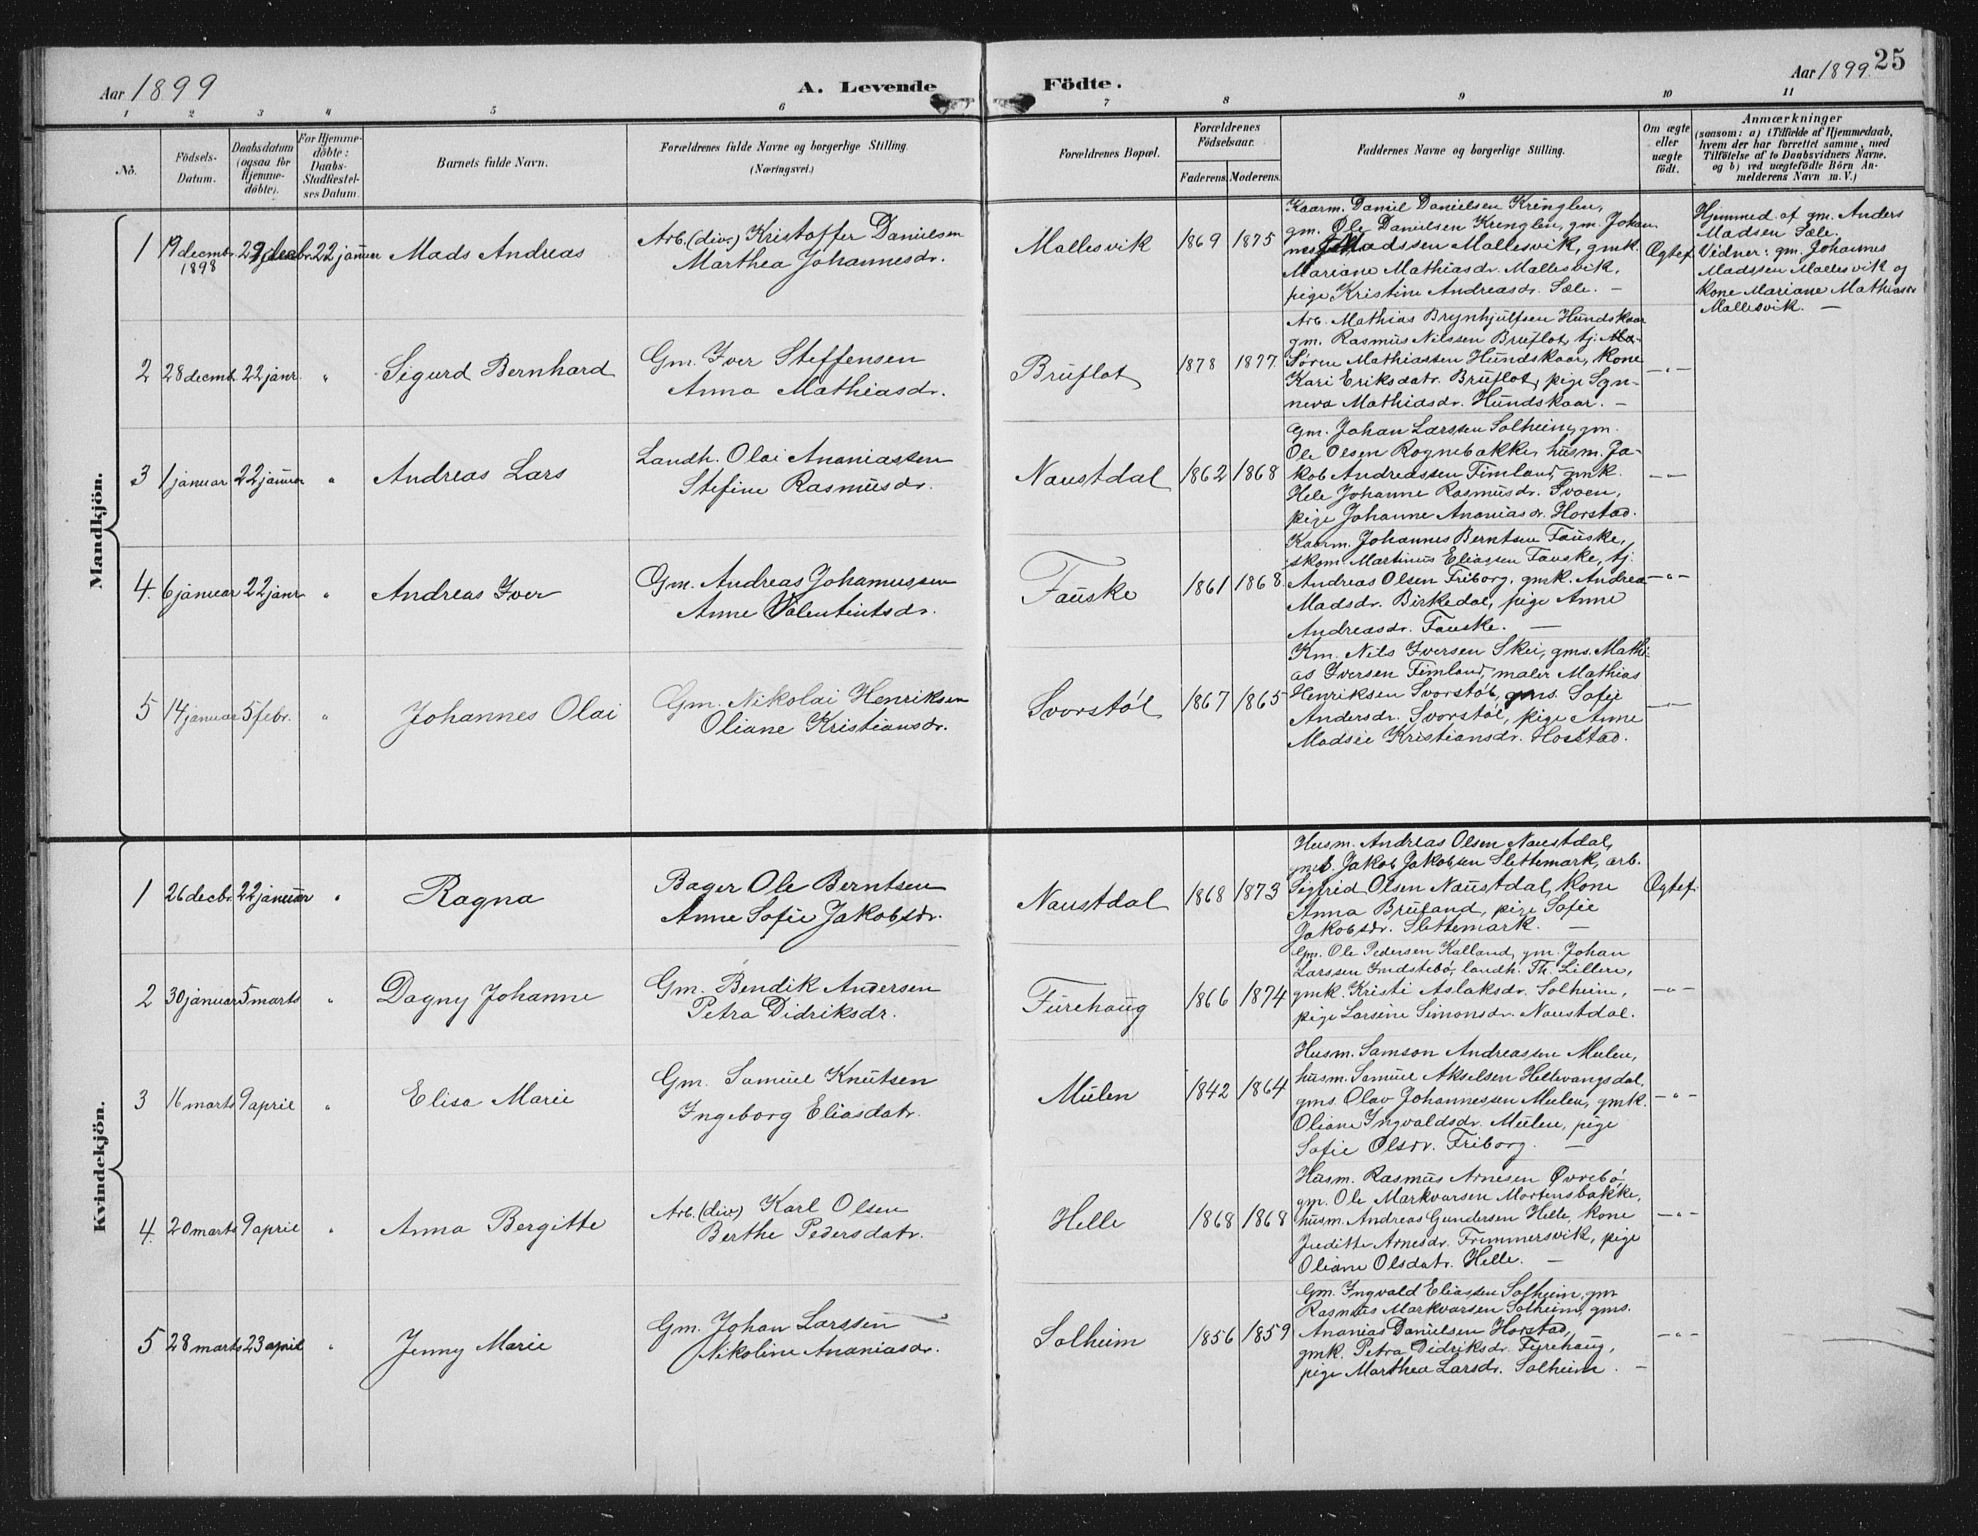 Aar 1899
A. Levende
Födte.
Aar 1899.
25
1 2 3 4 5 6 7 8 9 10 11
No.
Födsels-
Datum.
Daabsdatum
(ogsaa for
Hjemme-
döbte).
For Hjemme-
döbte:
Daabs-
Stadfæstel-
ses Datum.
Barnets fulde Navn.
Forældrenes fulde Navne og borgerlige Stilling.
(Næringsvei.)
Forældrenes Bopæl.
Forældrenes
Födselsaar.
Faderens.
Moderens.
Faddernes Navne og borgerlige Stilling.
Om ægte
eller
uægte
födt.
Anmærkninger
(saasom: a) i Tilfælde af Hjemmedaab,
hvem der har forrettet samme, med
Tilföielse af to Daabsvidners Navne,
og b) ved uægtefödte Börn An-
melderens Navn m. V.)
Mandkjön.
1
19 decmbr.
1898
22 januar
Mads Andreas
Arb. (div.) Kristoffer Danielsen
Marthea Johannesdr.
Mallesvik
1869
1875
Kaarm. Daniel Danielsen Kringlen,
gm. Ole Danielsen Kringlen, gm. Johan-
nes Madssen Mallesvik, gmk.
Mariane Mathiasdr. Mallesvik,
pige Kristine Andreasdr. Sæle. —
Ægtef.
Hjemmed. af gm. Anders
Madsen Sæle.
Vidner: gm. Johannes
Madssen Mallesvik og
kone Mariane Mathiasdr
Mallesvik. —
2
28 decmb.
22 janr.
"
Sigurd Bernhard
Gm. Iver Steffensen
Anna Mathiasdr.
Bruflot
1878
1877
Arb. Mathias Brynhjulfsen Hundskaar
gm. Rasmus Nilssen Bruflot, tj.
Søren Mathiassen Hundskaar, kone
Kari Eriksdatr. Bruflot, pige Syn-
neva Mathiasdr. Hundskaar. —
—"—
3
1 januar
22 januar
"
Andreas Lars
Landh. Olai Ananiassen
Stefine Rasmusdr.
Naustdal
1862
1868
Gm. Johan Larssen Solheim, gm.
Ole Olsen Rognebakke, husm. Ja-
kob Andreassen Timland, gmk.
Hele Johanne Rasmusdr. Svoen,
pige Johanne Ananiasdr. Horstad.
—"—
4.
6 januar
22 janr
"
Andreas Iver
Gm. Andreas Johannessen
Anne Valentinsdr.
Fauske
1861
1868
Kaarm. Johannes Berntsen Fauske,
skom. Martinus Eliassen Fauske, tj.
Andreas Olsen Friborg, gmk. Andrea
Madsdr. Birkedal, pige Anne
Andreasdr. Fauske. —
—"—
5
14 januar
5 febr.
"
Johannes Olai
Gm. Nikolai Henriksen
Oliane Kristiansdr.
Svorstøl
1867
1865
Km. Nils Iversen Skei, gms. Mathi-
as Iversen Timland, maler Mathias
Henriksen Svorstøl, gms. Sofie
Andersdr. Svorstøl, pige Anne
Madsie Kristiansdr. Horstad.
—"—
Kvindekjön.
1
26 decbr.
22 januar
"
Ragna
Bager Ole Berntsen
Anne Sofie Jakobsdr.
Naustdal
1868
1873
Husm. Andreas Olsen Naustdal,
Jakob Jakobsen Slettemark, arb.
Sigfrid Olsen Naustdal, kone
Anna Bruland, pige Sofie
Jakobsdr. Slettemark. —
Ægtef.
2
30 januar
5 marts
"
Dagny Johanne
Gm. Bendik Andersen
Petra Didriksdr.
Furehaug
1866
1874
Gm. Ole Pedersen Kalland, gm. Johan
Larssen Indstebø, landh. Th. Lillere,
gmk. Kristi Aslaksdr. Solheim,
pige Larsine Simonsdr. Naustdal.
—"—
3
16 marts
9 april
"
Elisa Marie
Gm. Samuel Knutsen
Ingeborg Eliasdatr.
Mulen
1842
1864
Husm. Samson Andreassen Mulen,
husm. Samuel Akselsen Hellevangsdal,
gms. Olav Johannessen Mulen, gmk.
Oliane Ingvaldsdr. Mulen, pige
Sofie Olsdr. Friborg. —
—"—
4.
20 marts
9 april
"
Anna Bergitte
Arb. (div) Karl Olsen
Berthe Pedersdatr.
Helle
1868
1868
Husm. Rasmus Arnesen Øvrebø,
gm. Ole Markvarsen Mortensbakke,
husm. Andreas Gundersen Helle, kone
Juditte Arnesdr. Frimmersvik, pige
Oliane Olsdatr. Helle. —
—"—
5
28 marts
23 april
"
Jenny Marie
Gm. Johan Larssen
Nikoline Ananiasdr.
Solheim
1856
1859
Gm. Ingvald Eliassen Solheim, gm
Rasmus Markvarsen Solheim, gms.
Ananias Danielsen Horstad,
gmk. Petra Didriksdr. Furehaug,
pige Marthea Larsdr. Solheim. —
—"—